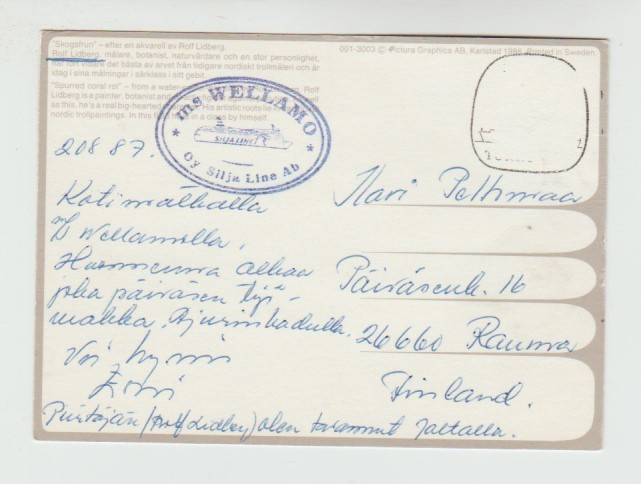 "Skogsfrun" – efter en akvarell av Rolf Lidberg.
Rolf Lidberg, målare, botanist, naturvårdare och en stor personlighet,
har fört vidare det bästa av arvet från tidigare nordiskt trollmåleri och är
idag i sina målningar i särklass i sitt gebit.
"Spurred coral rot" – from a water
Lidberg is a painter, botanist
so this, he's a real big-hearted His artistic roots lie
nordic trollpaintings. In this field in a class by himself.
001-3003 © Pictura Graphica AB, Karlstad 1986. Printed in Sweden
ms WELLAMO
SILJA LINE
Oy Silja Line Ab
20887.
Kotimatkalla
m/s Wellamolla.
Huomenna alkaa
joka päiväsen työ-
matka.
Voi hyvin
Piirtäjän (Rolf Lidberg) olen tavannut
Päiväsenk. 16
26660 Rauma
Finland.